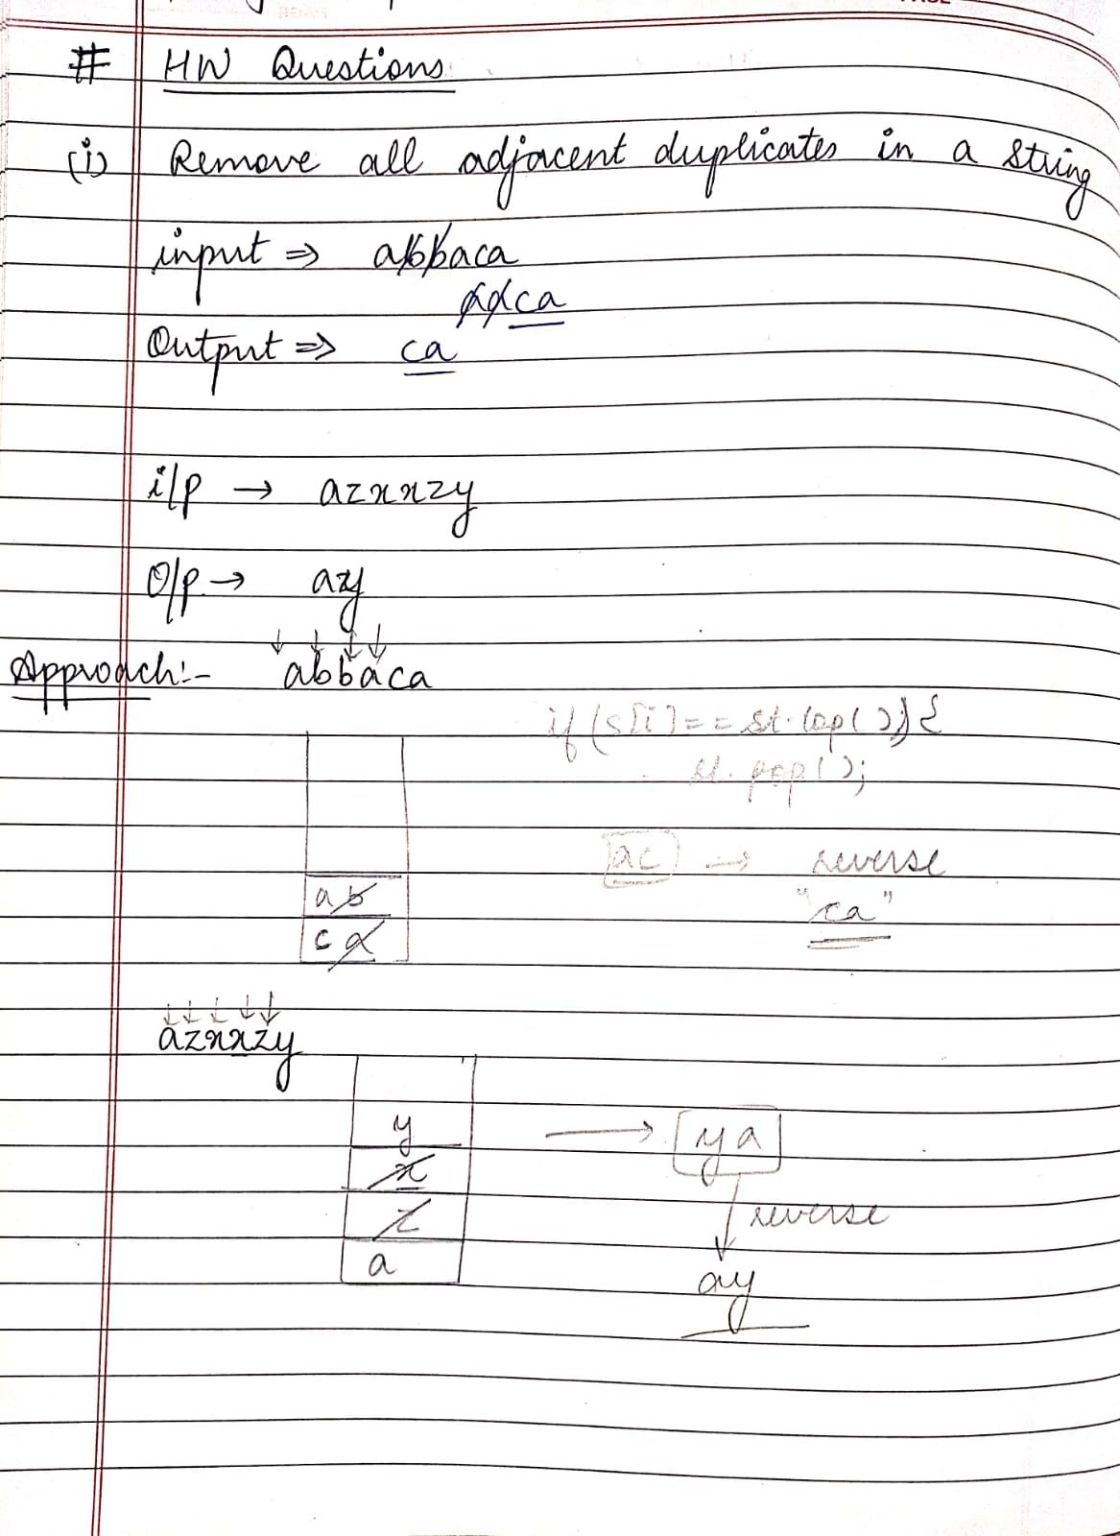 # HW Questions
(i) Remove all adjacent duplicates in a string
input ⇒ abbaca
aaca
Output ⇒ ca
i/p → azxxzy
O/p → ay
Approach:- abbaca
if (s[i] == st.top()) {
st.pop();
ac → reverse
"ca"
a b
c a
azxxzy
y → ya
x
z reverse
a ay